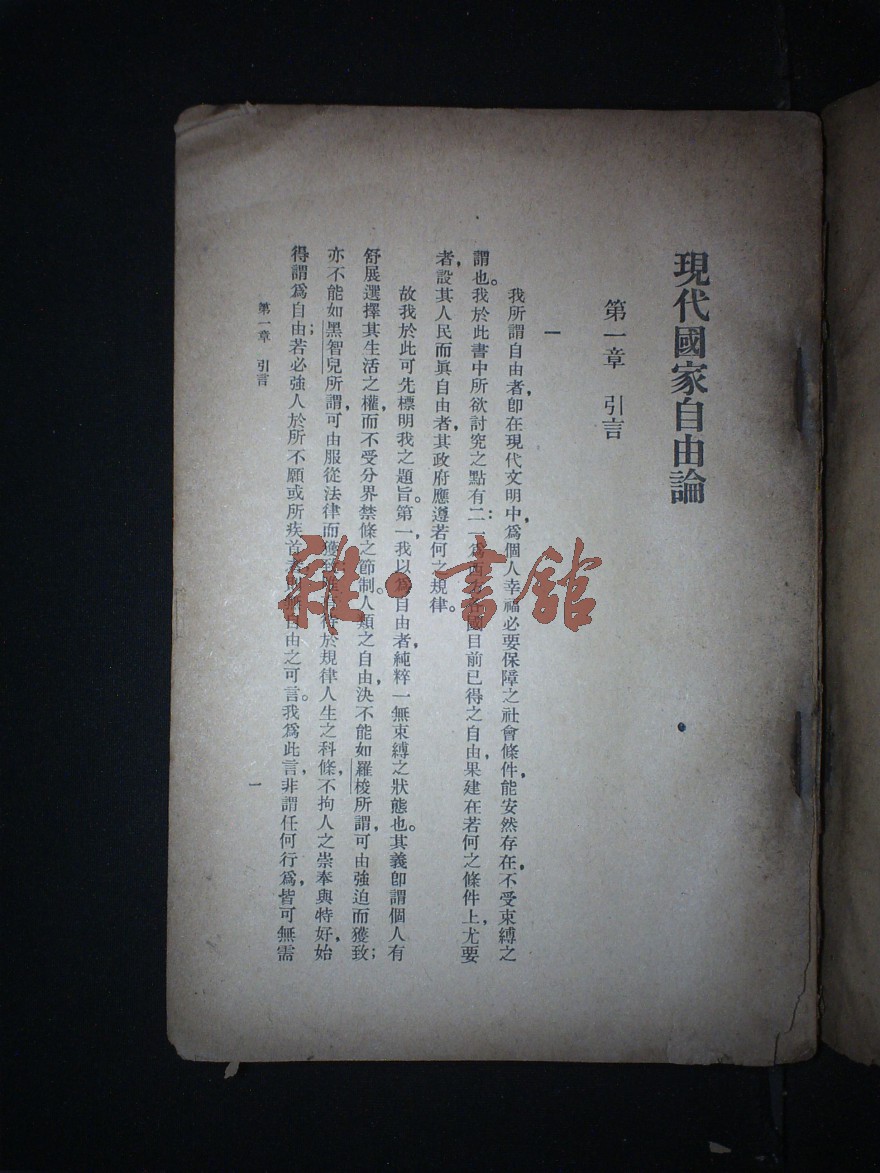 現代國家自由論
第一章 引言
一
我所謂自由者，卽在現代文明中，爲個人幸福必要保障之社會條件，能安然存在，不受束縛之
謂也。我於此書中所欲討究之點有二：一爲西方各國目前已得之自由，果建在若何之條件上，尤要
者，設其人民而眞自由者，其政府應遵若何之規律。
故我於此可先標明我之題旨。第一，我以爲自由者，純粹一無束縛之狀態也。其義卽謂個人有
舒展選擇其生活之權，而不受分界禁條之節制。人類之自由，決不能如羅梭所謂，可由強迫而獲致；
亦不能如黑智兒所謂，可由服從法律而獲致；於規律人生之科條，不拘人之崇奉與特好，始
得謂爲自由；若必強人於所不願或所疾首無自由之可言。我爲此言，非謂任何行爲，皆可無需
第一章 引言
一
雜·書館